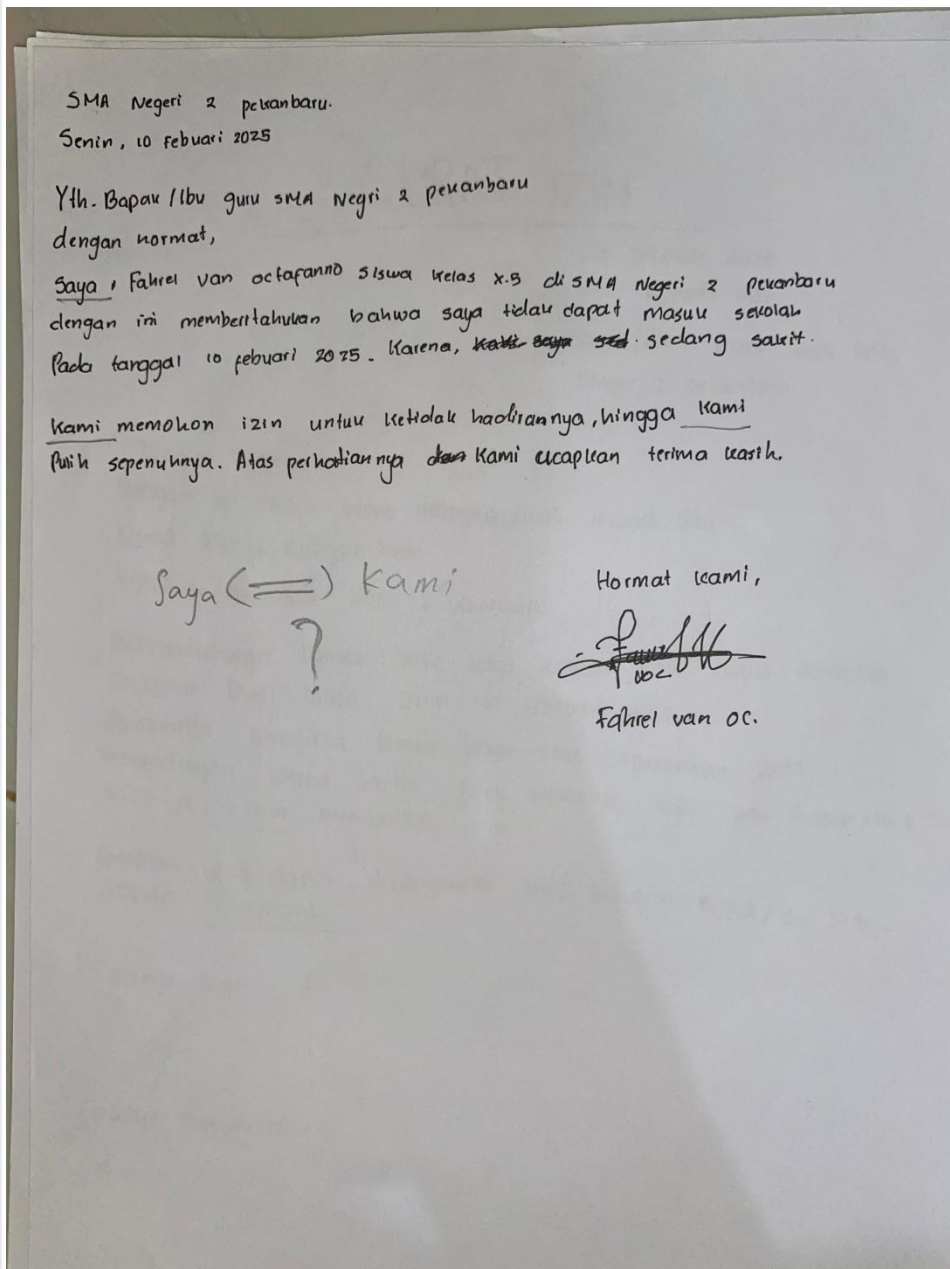 SMA Negeri 2 pekanbaru.
Senin, 10 Febuari 2025
Yth. Bapak / Ibu guru SMA Negri 2 pekanbaru
dengan hormat,
Saya, Fahrel van octafanno siswa kelas x.5 di SMA Negeri 2 pekanbaru
dengan ini memberitahukan bahwa saya tidak dapat masuk sekolah
Pada tanggal 10 febuari 2025. Karena, sedang sakit.
Kami memohon izin untuk ketidak hadirannya, hingga kami
Pulih sepenuhnya. Atas perhatiannya kami ucapkan terima kasih.
Saya (=) Kami
?
Hormat kami,
Fahrel van oc.